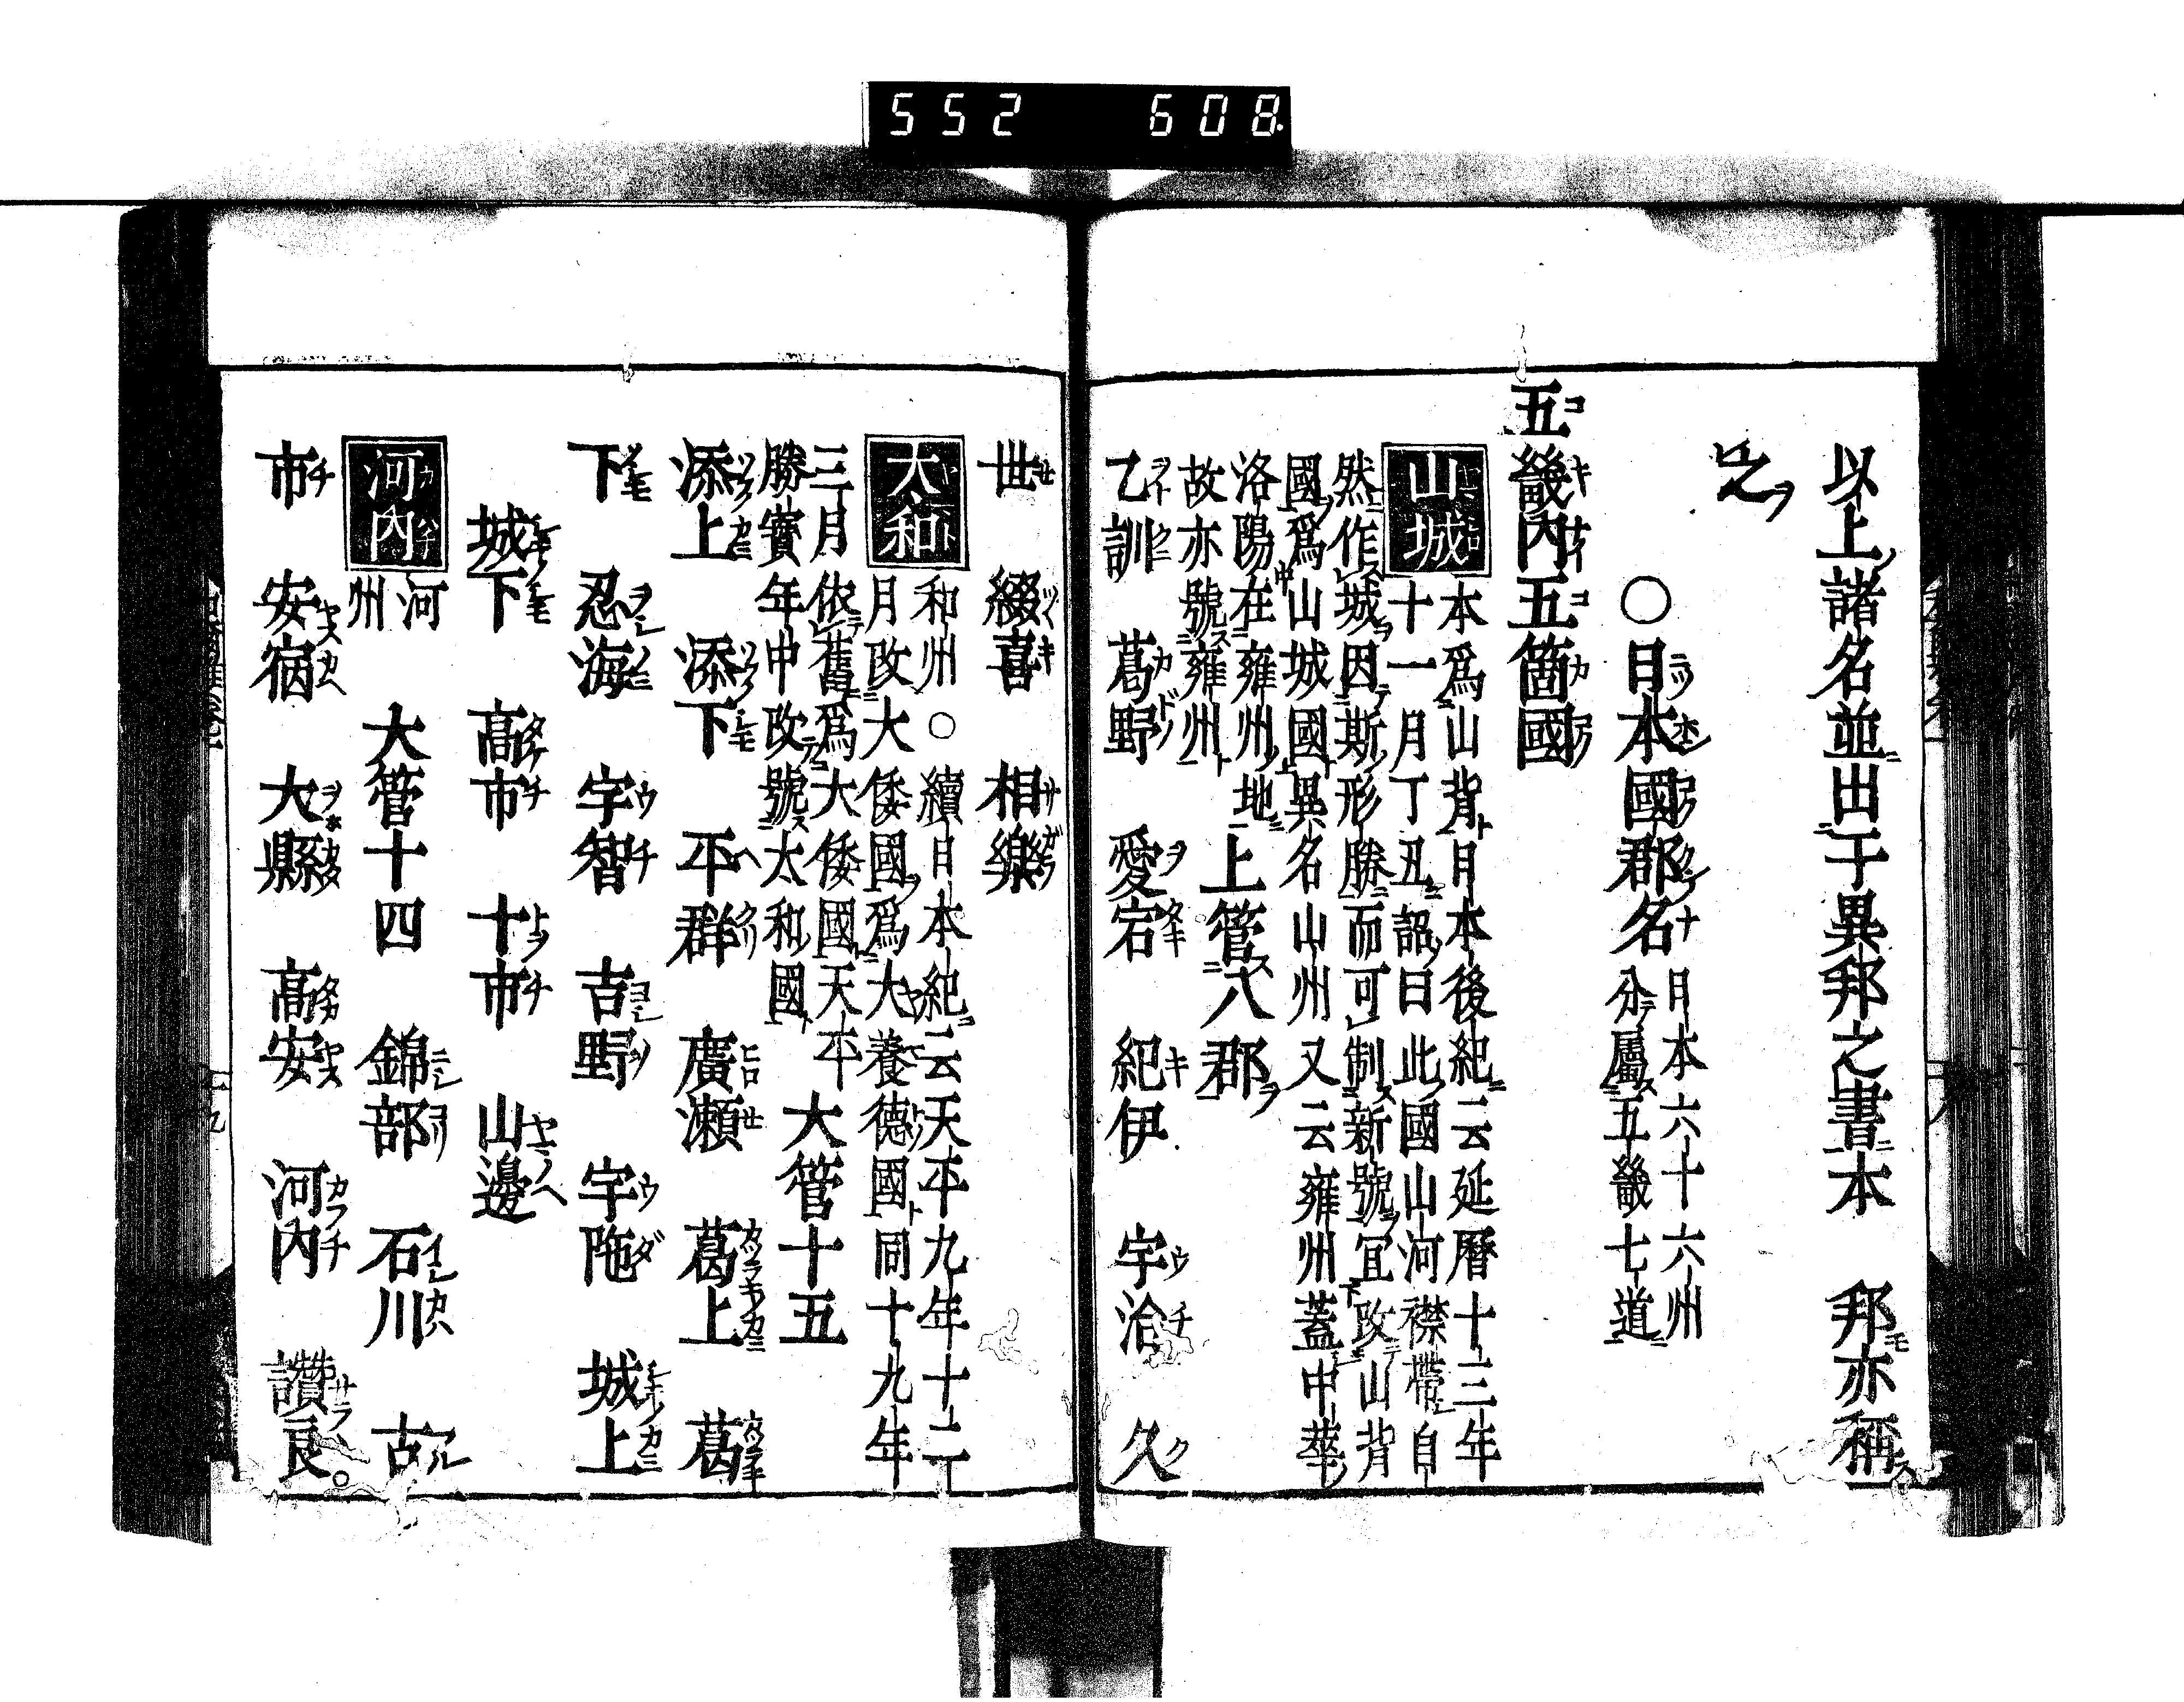 552 608
以上諸名並出于異邦之書本 邦亦稱
之
○日本國郡名 日本六十六州
分屬五畿七道
五畿內五箇國
山城 本爲山背日本後紀云延曆十三年
十一月丁丑詔曰此國山河襟帶自
然作城因斯形勝而可制新號宜改山背
國爲山城國異名山州又云雍州蓋中華
洛陽在雍州地
故亦號雍州
上管八郡
乙訓 葛野 愛宕 紀伊 宇治 久
世 綴喜 相樂
大和 和州○續日本紀云天平九年十二
月改大倭國爲大養德國同十九年
三月依舊爲大倭國天平
勝寶年中改號大和國
大管十五
添上 添下 平群 廣瀨 葛上 葛
下 忍海 宇智 吉野 宇陁 城上
城下 高市 十市 山邊
河內 河
州 大管十四 錦部 石川 古
市 安宿 大縣 高安 河內 讚良。